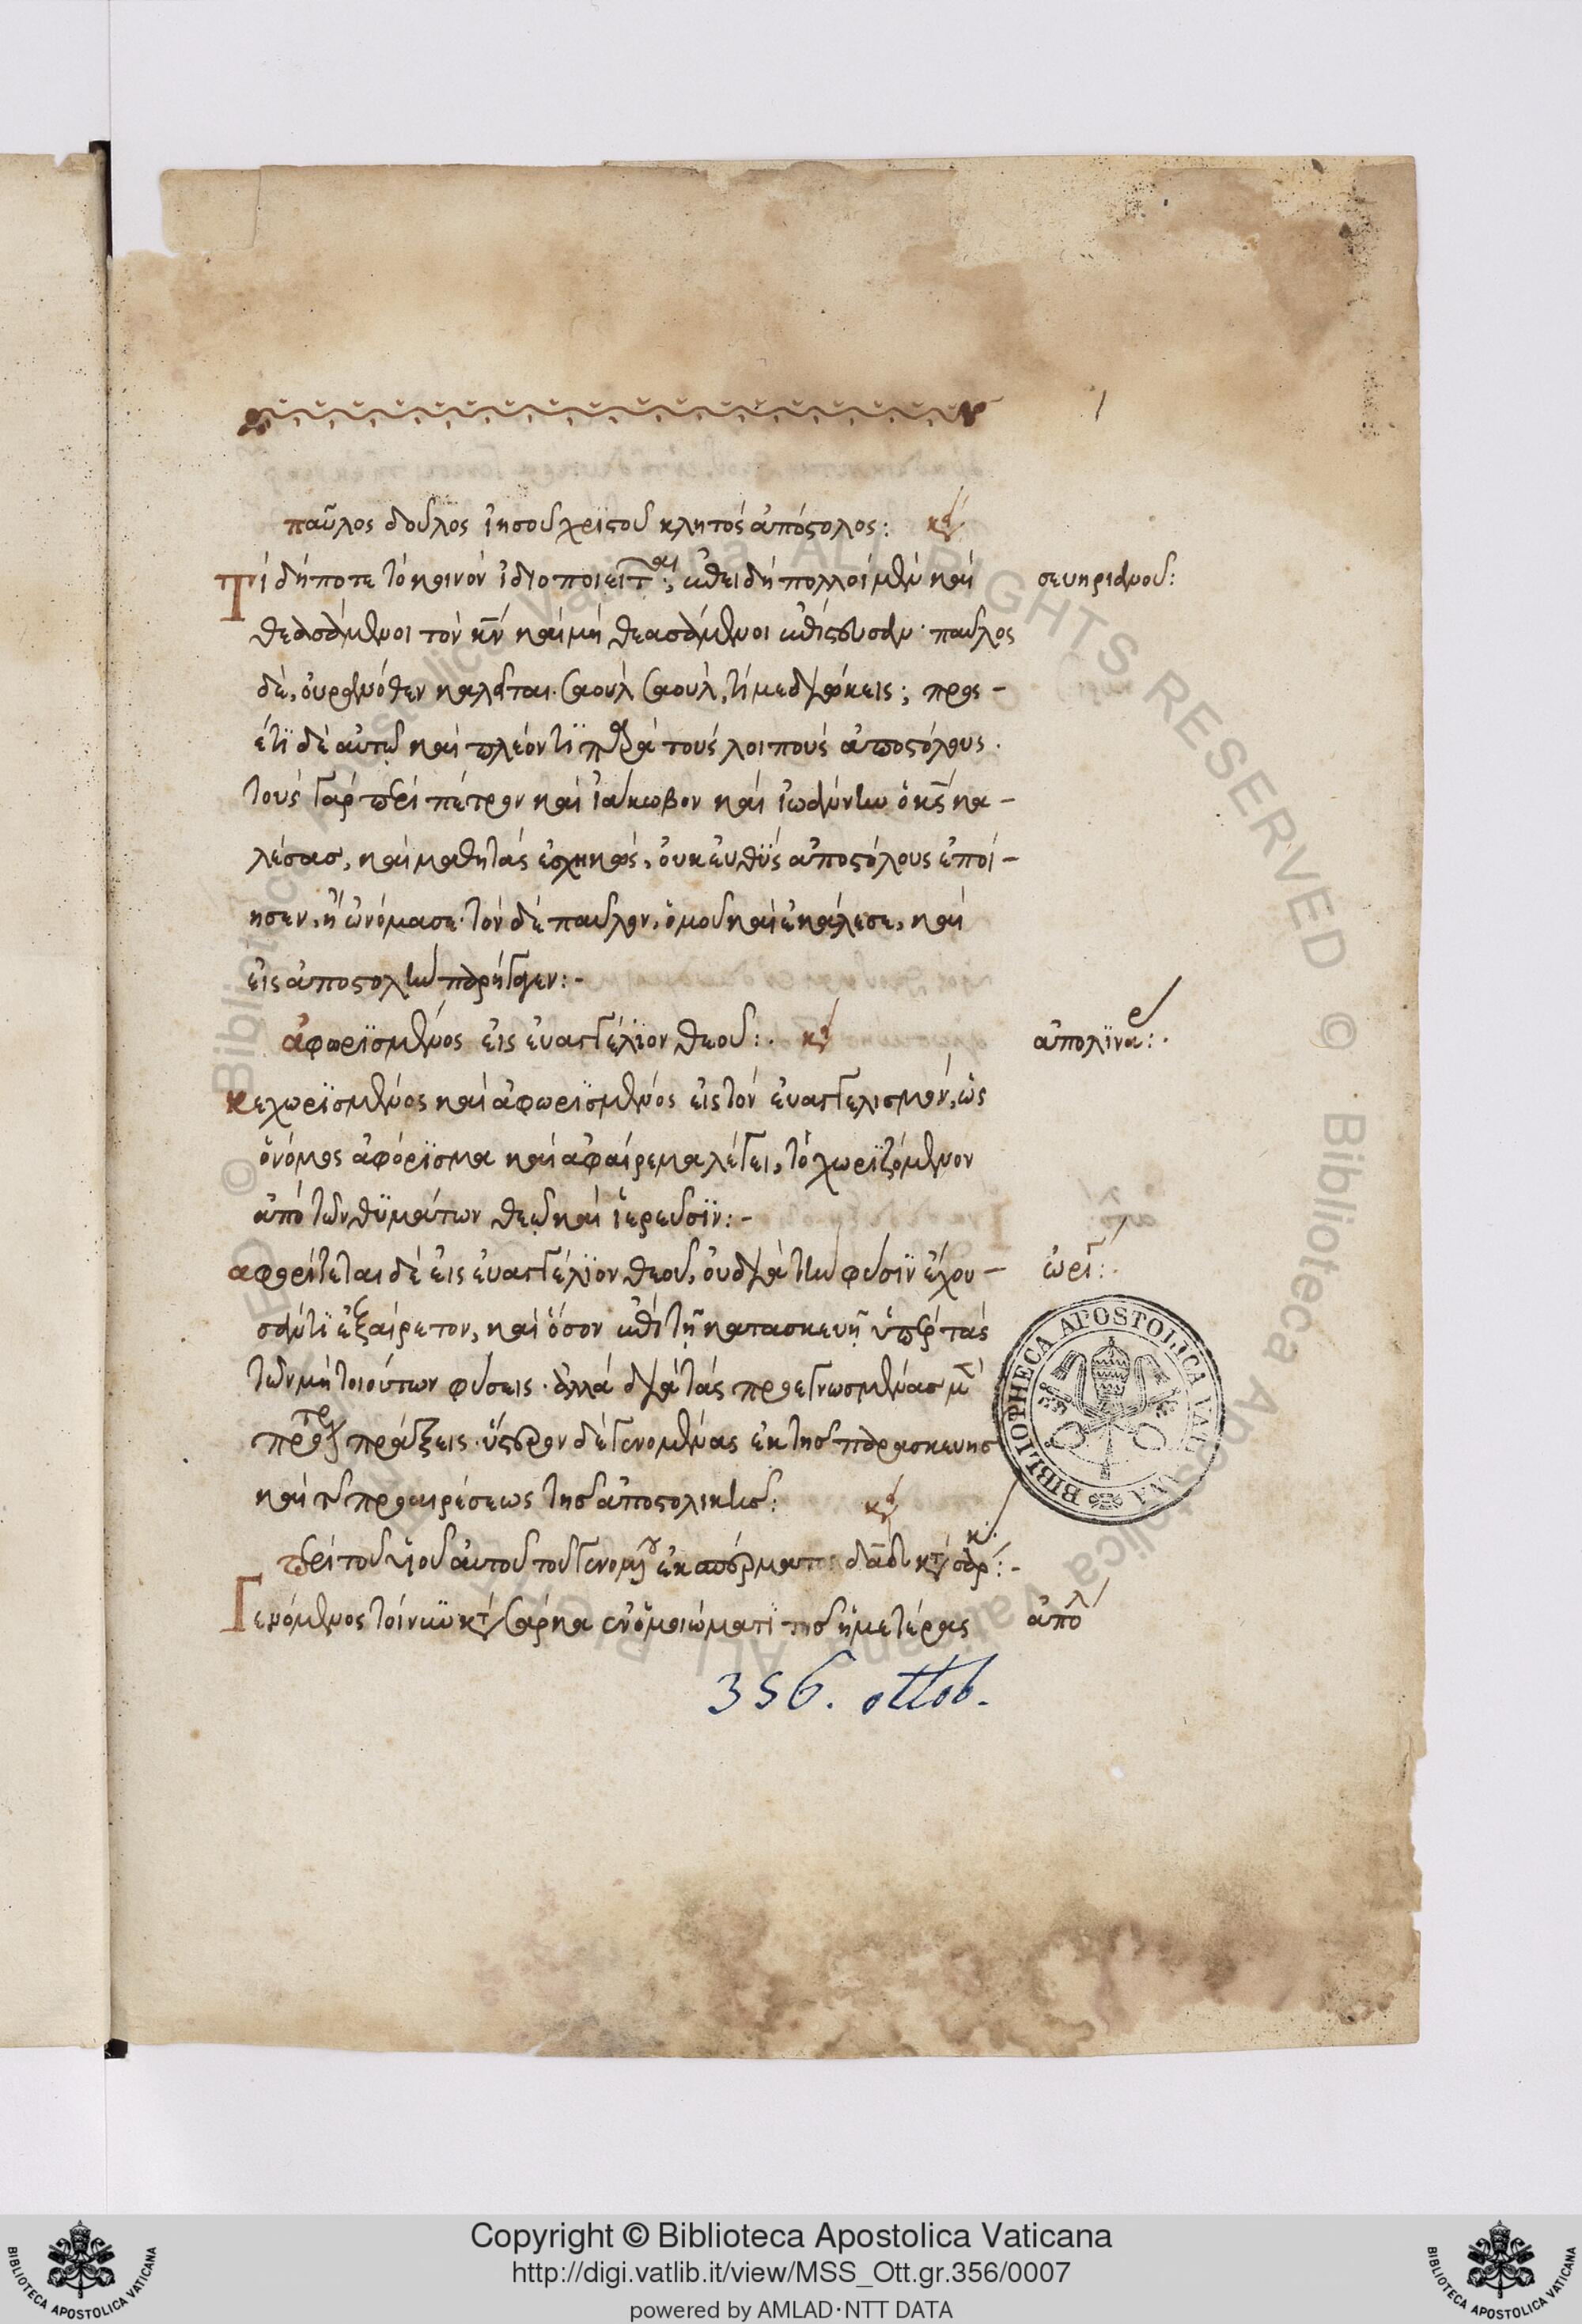 παῦλος δοῦλος ἰησοῦ χριστοῦ κλητὸς ἀπόστολος:
Τί δήποτε τὸ κοινὸν ἰδιοποιεῖται; ἐπειδὴ πολλοὶ μὲν καὶ
σευηριανοῦ:
θεασάμενοι τὸν κν καὶ μὴ θεασάμενοι ἐπίστευσαν· παῦλος
δὲ, οὐρανόθεν καλεῖται. Σαοὺλ Σαοὺλ, τί με διώκεις; προσ-
έτι δὲ αὐτῷ καὶ πλέον τι παρὰ τοὺς λοιποὺς ἀποστόλους.
τοὺς γὰρ περὶ πέτρον καὶ ἰάκωβον καὶ ἰωάννην ὁ κς κα-
λέσας, καὶ μαθητὰς ἐσχηκὼς, οὐκ εὐθὺς ἀποστόλους ἐποί-
ησεν, ἢ ὠνόμασε· τὸν δὲ παῦλον, ὁμοῦ καὶ ἐκάλεσε, καὶ
εἰς ἀποστολὴν παρήγαγεν:-
ἀφωρισμένος εἰς εὐαγγέλιον θεοῦ:.
ἀπολιναρ:.
κεχωρισμένος καὶ ἀφωρισμένος εἰς τὸν εὐαγγελισμὸν, ὡς
ὁ νόμος ἀφόρισμα καὶ ἀφαίρεμα λέγει, τὸ χωριζόμενον
ἀπὸ τῶν θυμάτων θεῷ καὶ ἱερεῦσιν:-
ἀφορίζεται δὲ εἰς εὐαγγέλιον θεοῦ, οὐ διὰ τὴν φύσιν ἔχου-
ὠριγ:.
σάν τι ἐξαίρετον, καὶ ὅσον ἐπὶ τῇ κατασκευῇ ὑπὲρ τὰς
τῶν μὴ τοιούτων φύσεις. ἀλλὰ διὰ τὰς προεγνωσμένας μὲν
πρότερον πράξεις. ὕστερον δὲ γενομένας ἐκ τῆς παρασκευῆς
καὶ τῆς προαιρέσεως τῆς ἀποστολικῆς:
περὶ τοῦ υἱοῦ αὐτοῦ τοῦ γενομένου ἐκ σπέρματος δαδ κατὰ σάρκ:-
Γενόμενος τοίνυν κατὰ σάρκα ἐν ὁμοιώματι τῆς ἡμετέρας
ἀπολ
356. ottob.
BIBLIOTHECA APOSTOLICA VATICANA
Copyright © Biblioteca Apostolica Vaticana
http://digi.vatlib.it/view/MSS_Ott.gr.356/0007
powered by AMLAD·NTT DATA
BIBLIOTECA APOSTOLICA VATICANA
BIBLIOTECA APOSTOLICA VATICANA